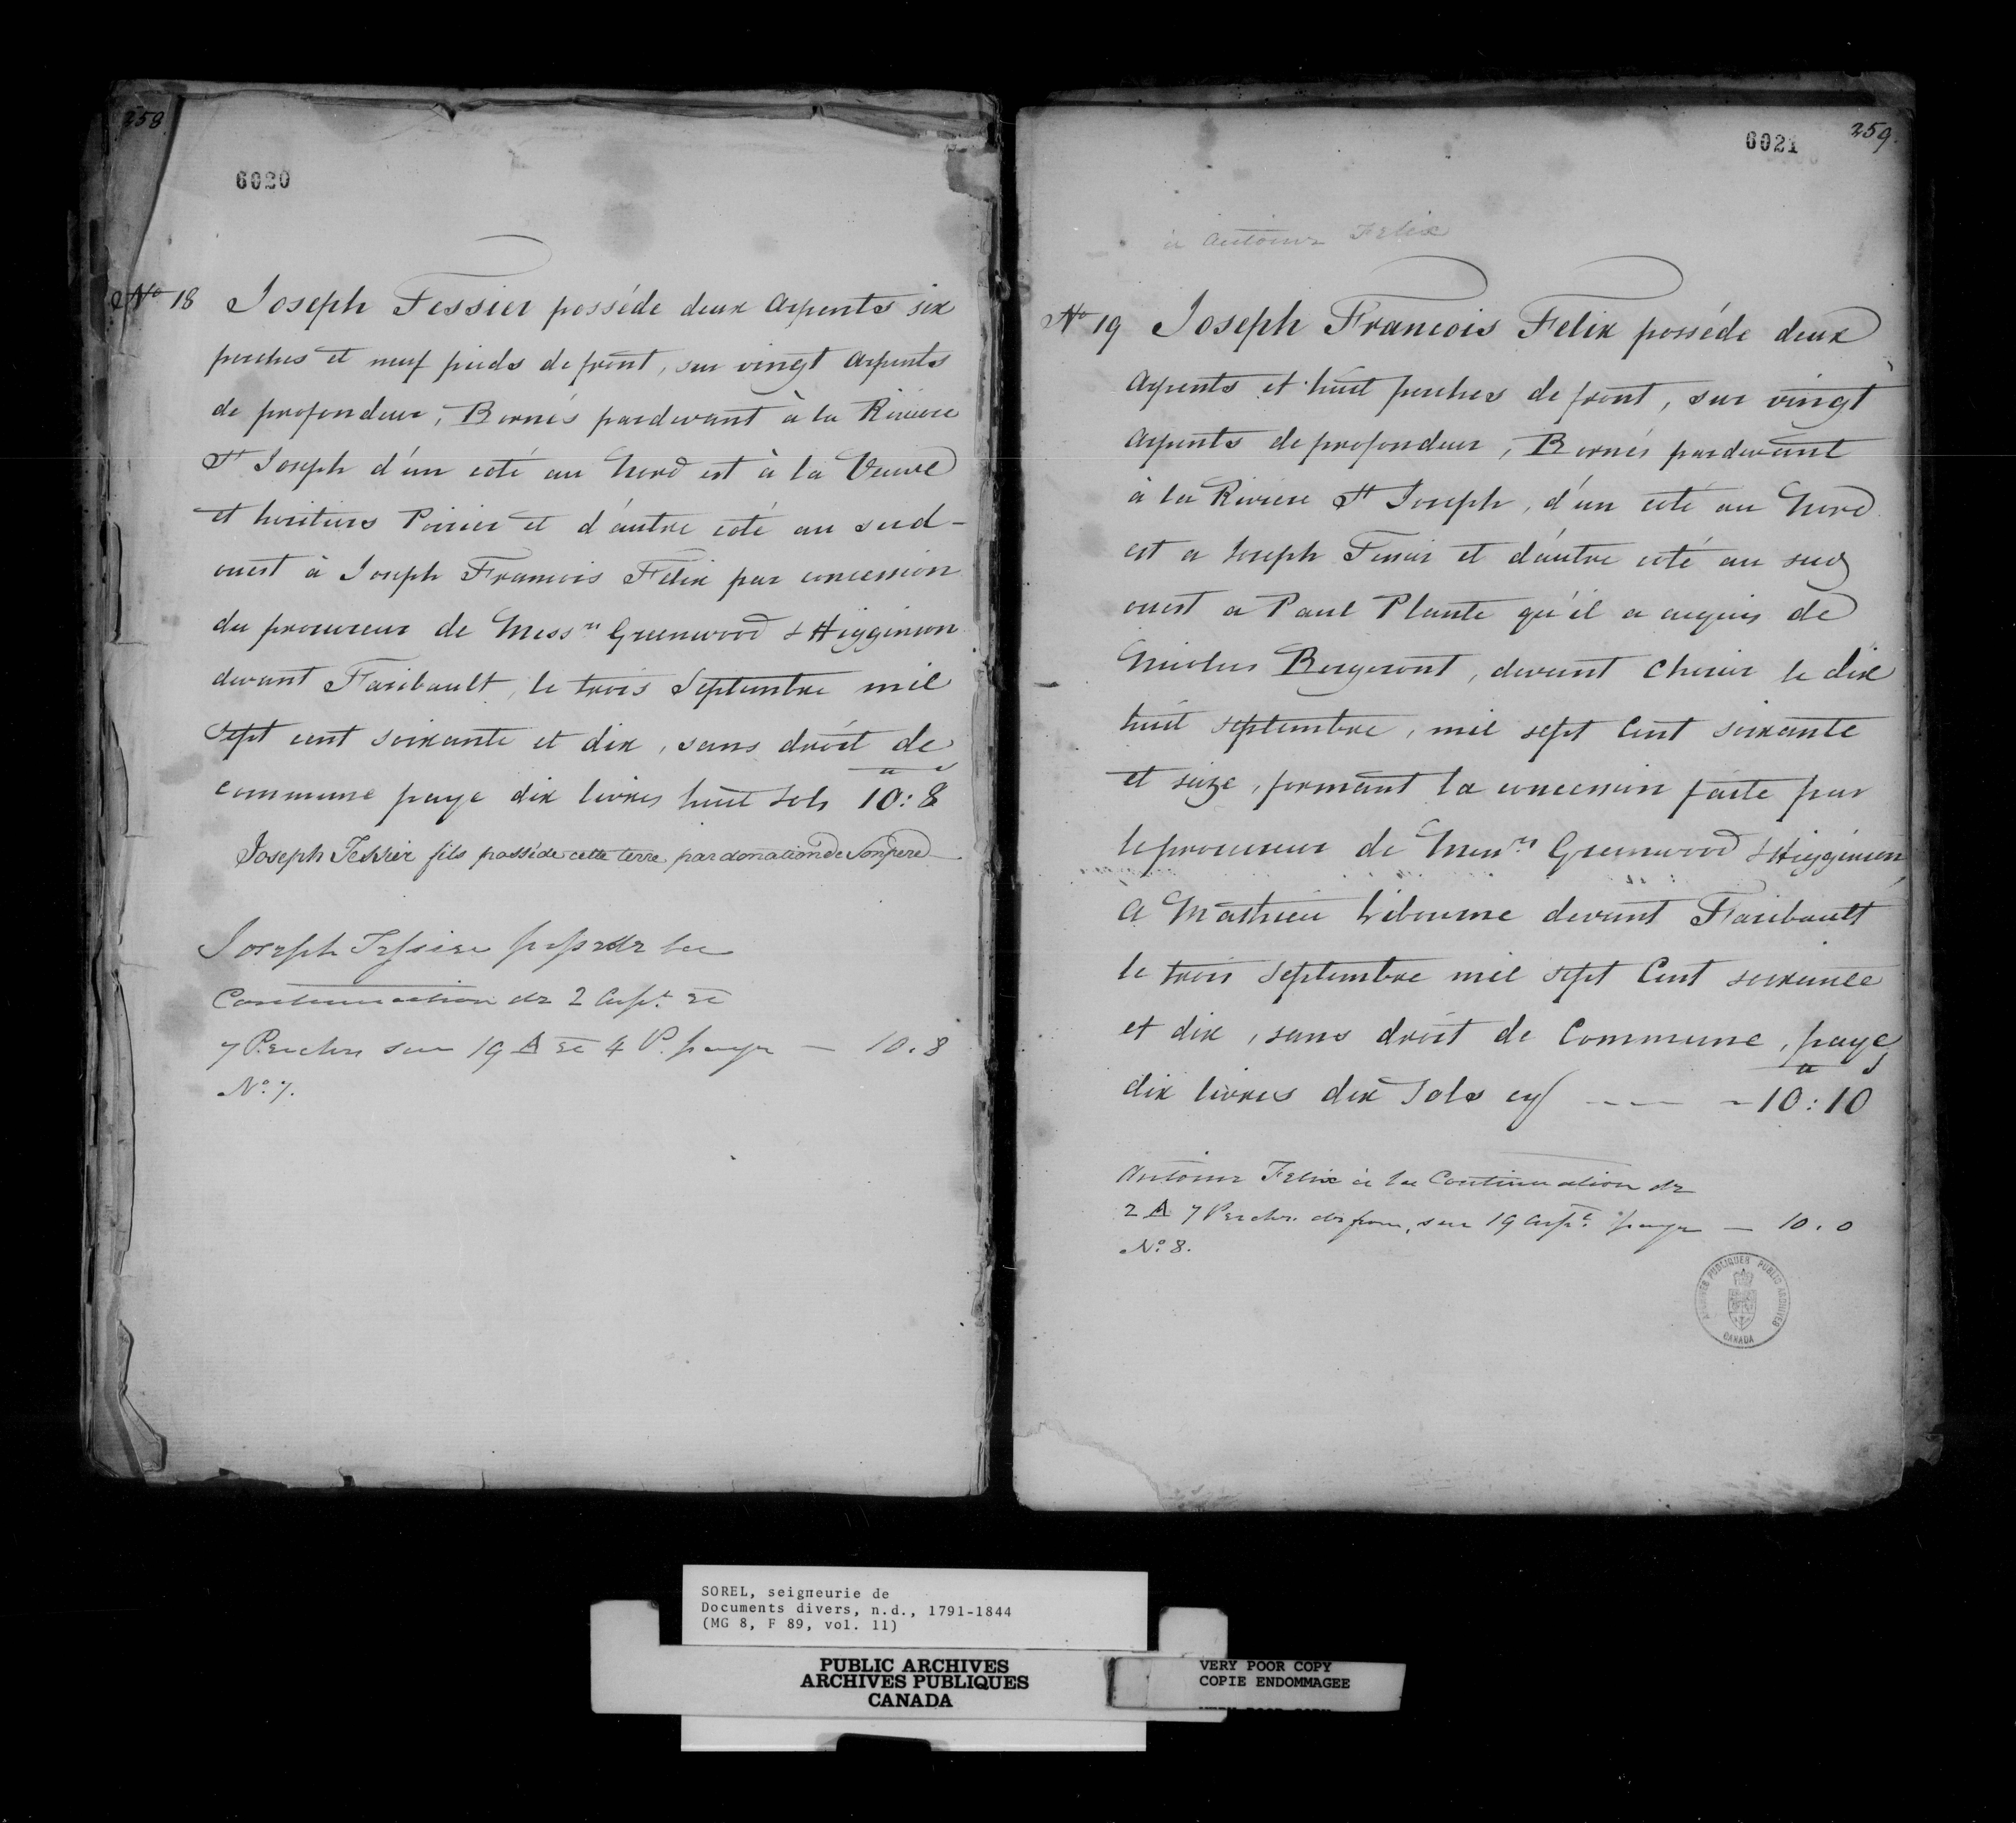 258.
6020
No 18 Joseph Tessier posséde deux Arpents six
perches et neuf pieds de front, sur vingt Arpents
de profondeur, Bornés pardevant à la Riviere
St Joseph d'un coté au Nord est à la Veuve
et heritiers Poirier et d'autre coté au sud-
ouest à Joseph Francois Félix par concession
du procureur de Messrs Greenwood & Higginson
devant Faribault, le trois Septembre mil
Sept cent soixante et dix, sans droit de
commune paye dix livres huit Sols 10:8
Joseph Tessier fils posséde cette terre par donation de Son pere
Joseph Tessier possede la
Continuation de 2 Arpt et
7 Perches sur 19 A et 4 P. paye — 10.8
No. 7.
259.
6021
à Antoine Felix
No 19 Joseph Francois Felix posséde deux
Arpents et huit perches de front, sur vingt
Arpents de profondeur, Bornés pardevant
à la Riviere St Joseph, d'un coté au Nord
est a Joseph Tessier et d'autre coté au sud
ouest a Paul Plante qu'il a acquis de
Nicolas Bergeront, devant
le dix
huit septembre, mil sept Cent soixante
et seize, formant la concession faite par
le procureur de Messrs Greenwood & Higginson
A Mathieu
devant Faribault
le trois Septembre mil sept Cent soixante
et dix, sans droit de Commune, paye
dix livres dix Sols cy — 10:10
Antoine Felix à la Continuation de
2 A 7 Perches de front, sur 19 Arpt. paye — 10.0
No. 8.
ARCHIVES PUBLIQUES PUBLIC ARCHIVES
CANADA
SOREL, seigneurie de
Documents divers, n.d., 1791-1844
(MG 8, F 89, vol. 11)
PUBLIC ARCHIVES
ARCHIVES PUBLIQUES
CANADA
VERY POOR COPY
COPIE ENDOMMAGEE
VERY POOR COPY